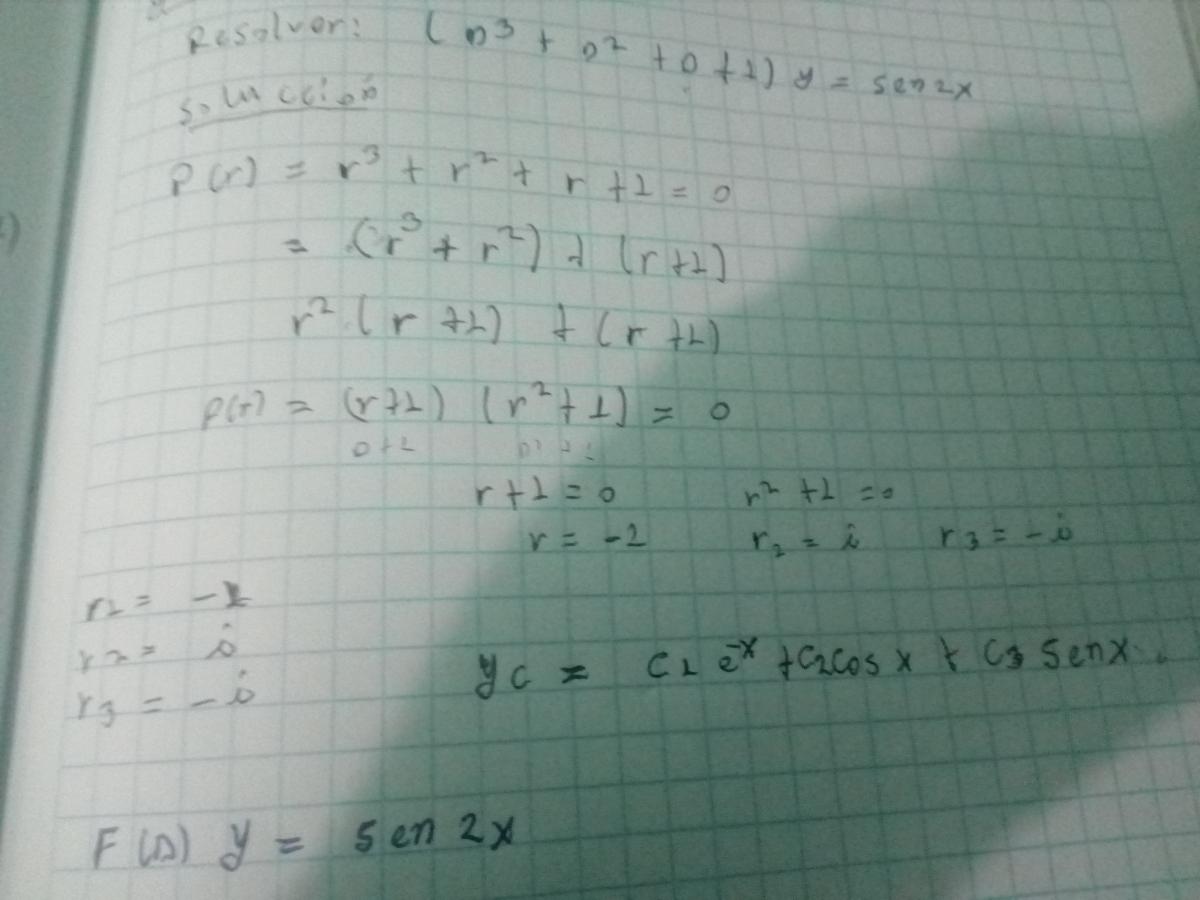 Resolver: (D³ + D² + D + 1) y = sen 2x
Solucción
P(r) = r³ + r² + r + 1 = 0
= (r³ + r²) + (r + 1)
r² (r + 1) + (r + 1)
P(r) = (r + 1) (r² + 1) = 0
D + 1 D² + 1
r + 1 = 0 r² + 1 = 0
r = -1 r₂ = i r₃ = -i
r₁ = -1
r₂ = i
r₃ = -i
yc = C₁ e⁻ˣ + C₂ cos x + C₃ sen x.
F(D) y = sen 2x